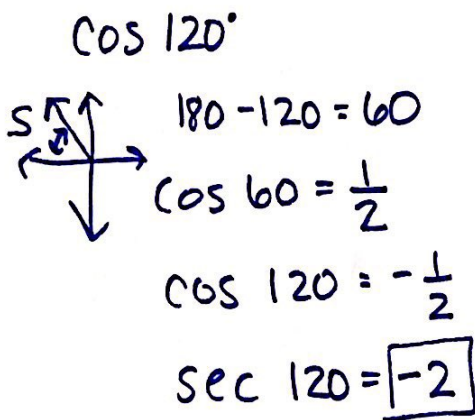 cos 120°
S
180 - 120 = 60
cos 60 = 1/2
cos 120 = - 1/2
sec 120 = -2